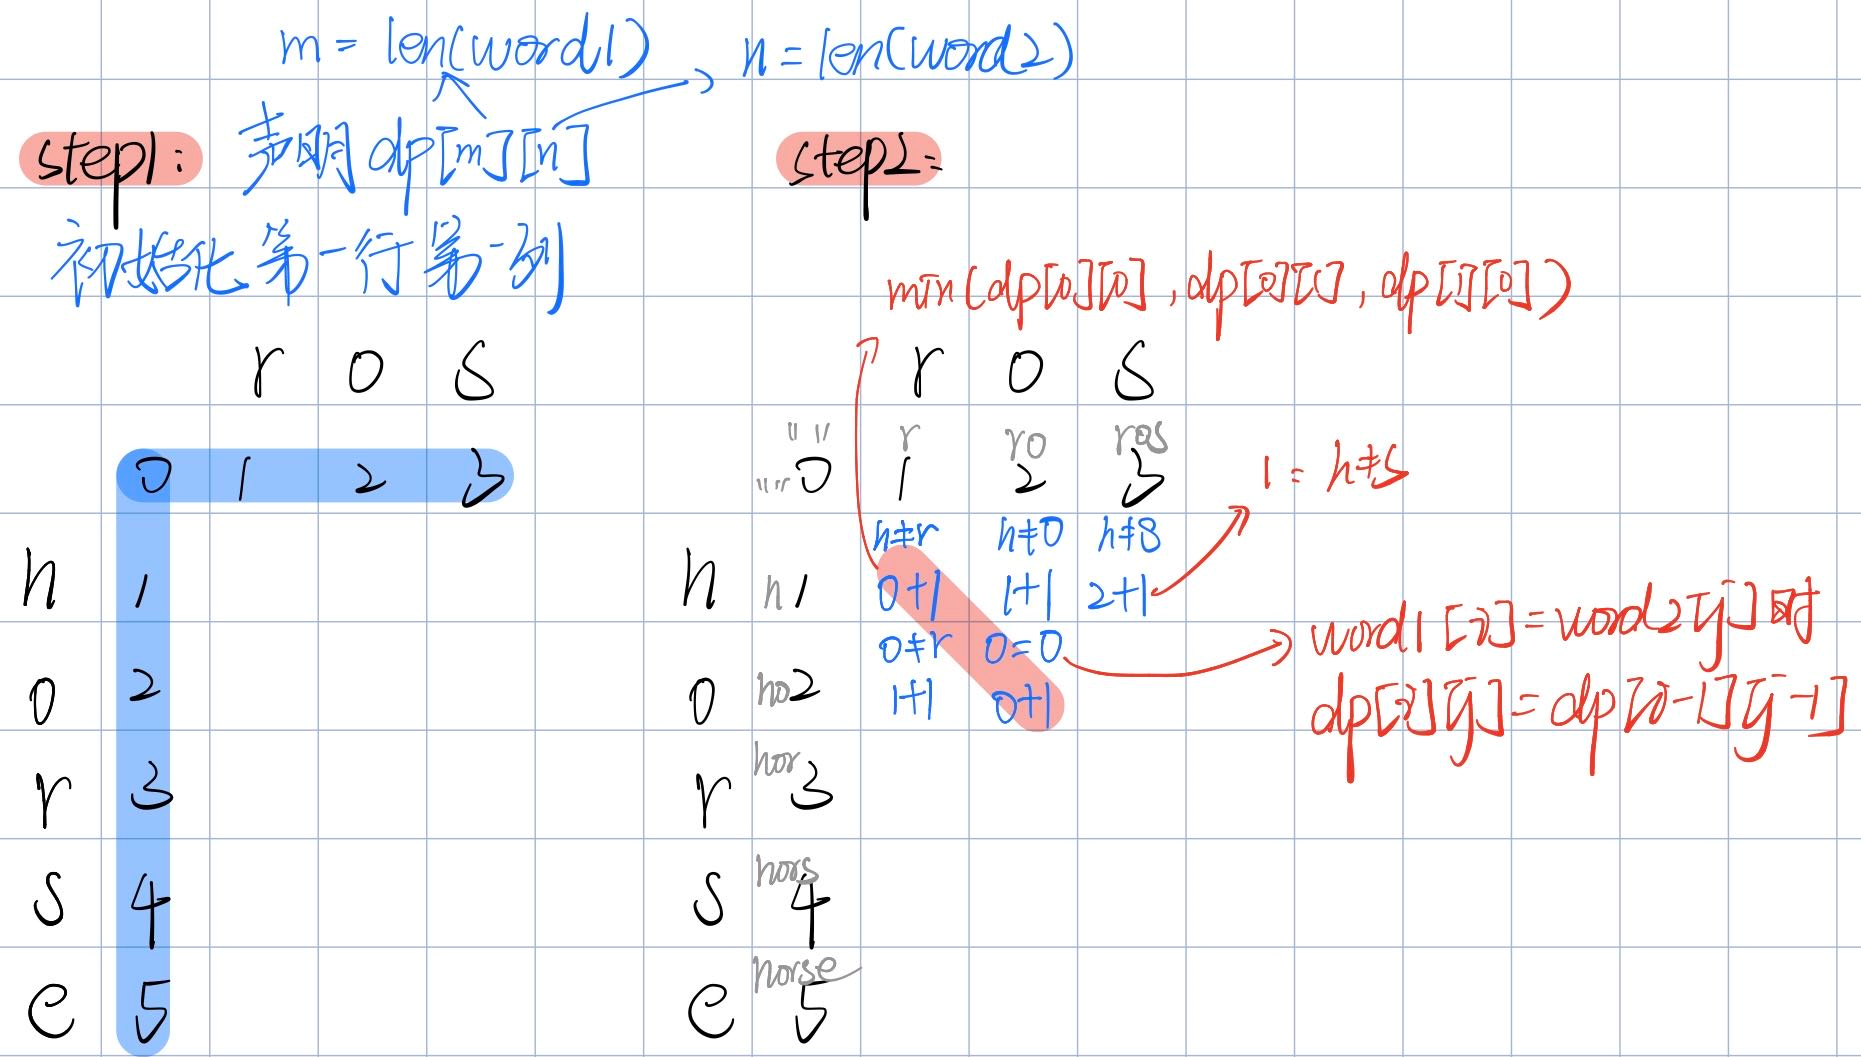 m = len(word1)
n = len(word2)
step1:
声明 dp[m][n]
初始化第一行第一列
r o s
0 1 2 3
h 1
o 2
r 3
s 4
e 5
step2:
min(dp[0][0], dp[0][1], dp[1][0])
r o s
"" r ro ros
"" 0 1 2 3
h≠r h≠o h≠s
h h 1 0+1 1+1 2+1
1: h≠s
o≠r o=o
o ho 2 1+1 0+1
word1[i]=word2[j]时
dp[i][j]=dp[i-1][j-1]
r hor 3
s hors 4
e horse 5